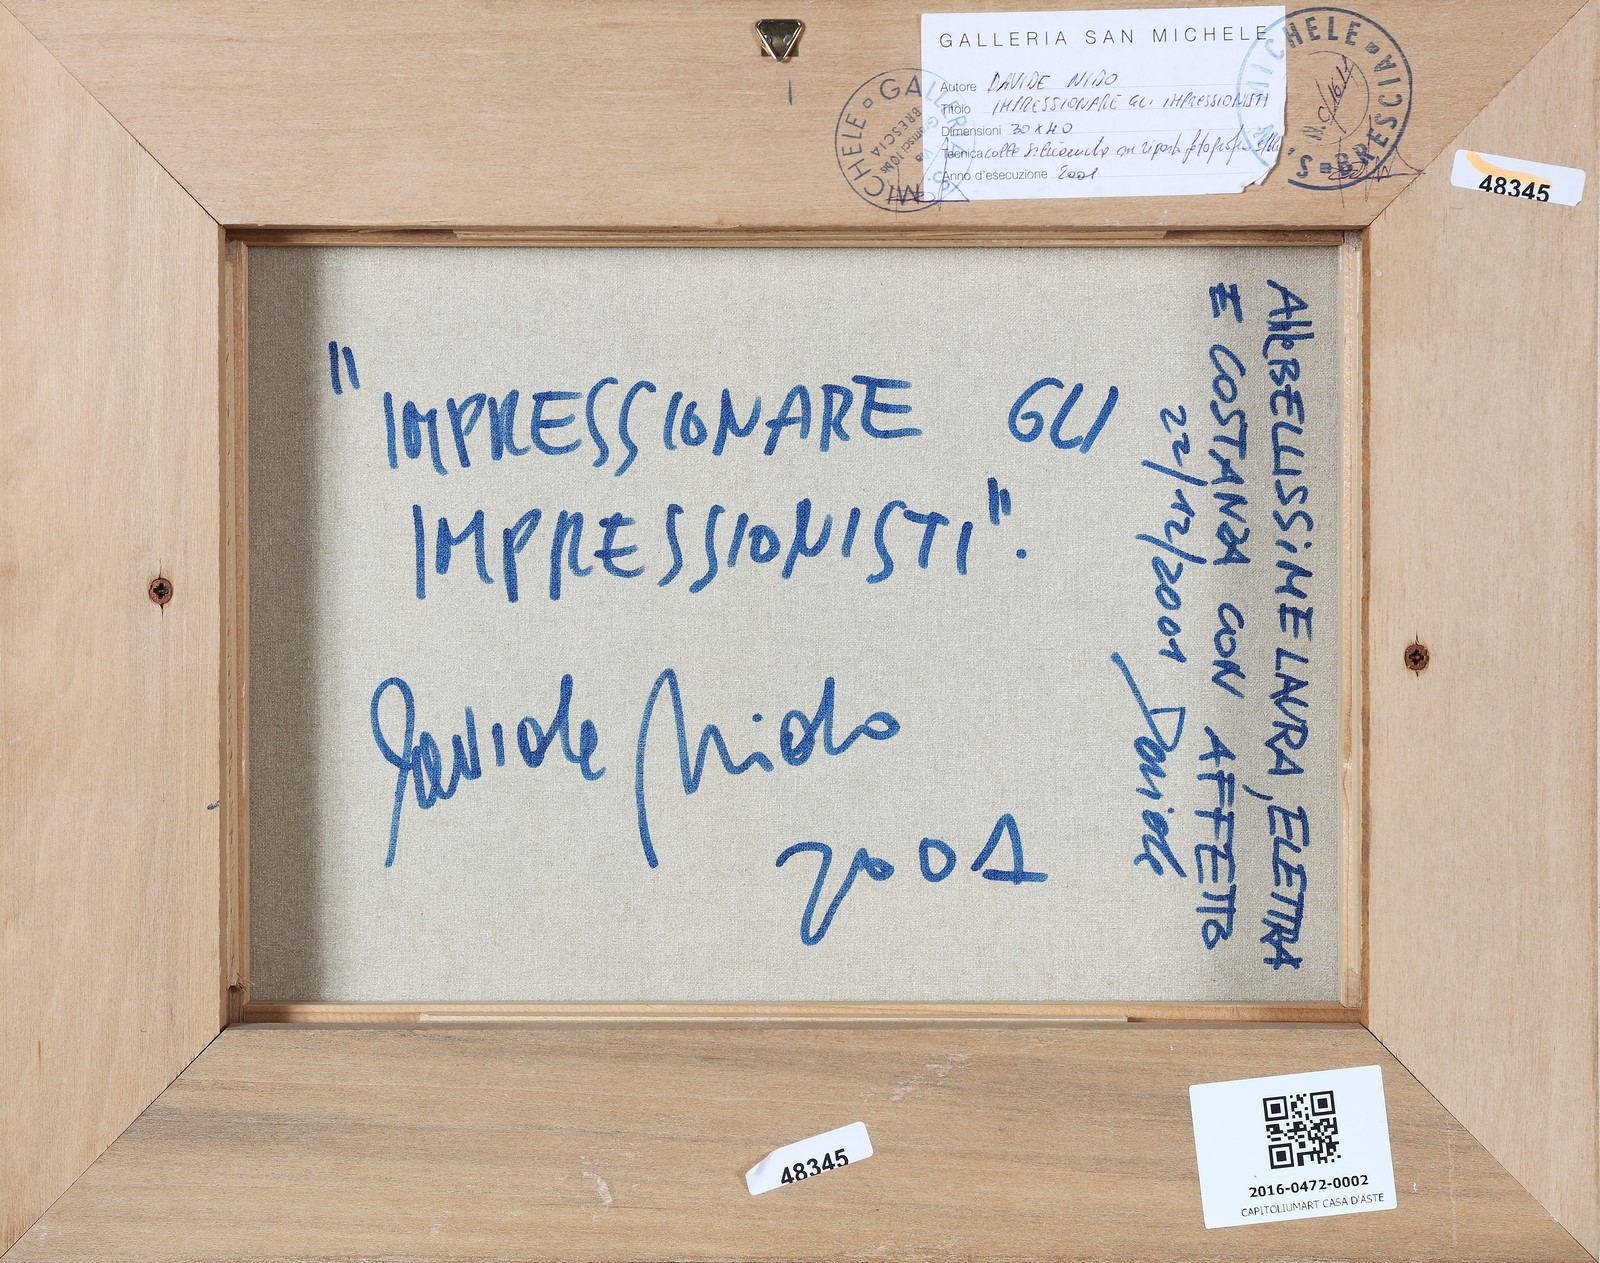 GALLERIA SAN MICHELE
Autore DAVIDE NIDO
Titolo IMPRESSIONARE GLI IMPRESSIONISTI
Dimensioni 30 x 40
Tecnica colle siliconiche con riporto fotografico
Anno d'esecuzione 2001
GALLERIA S. MICHELE
BRESCIA
S. MICHELE BRESCIA
48345
"IMPRESSIONARE GLI
IMPRESSIONISTI".
Davide Nido
2001
Alle BELLISSIME LAURA, ELETTRA
E COSTANZA CON AFFETTO
22/12/2001
Davide
48345
2016-0472-0002
CAPITOLIUMART CASA D'ASTE